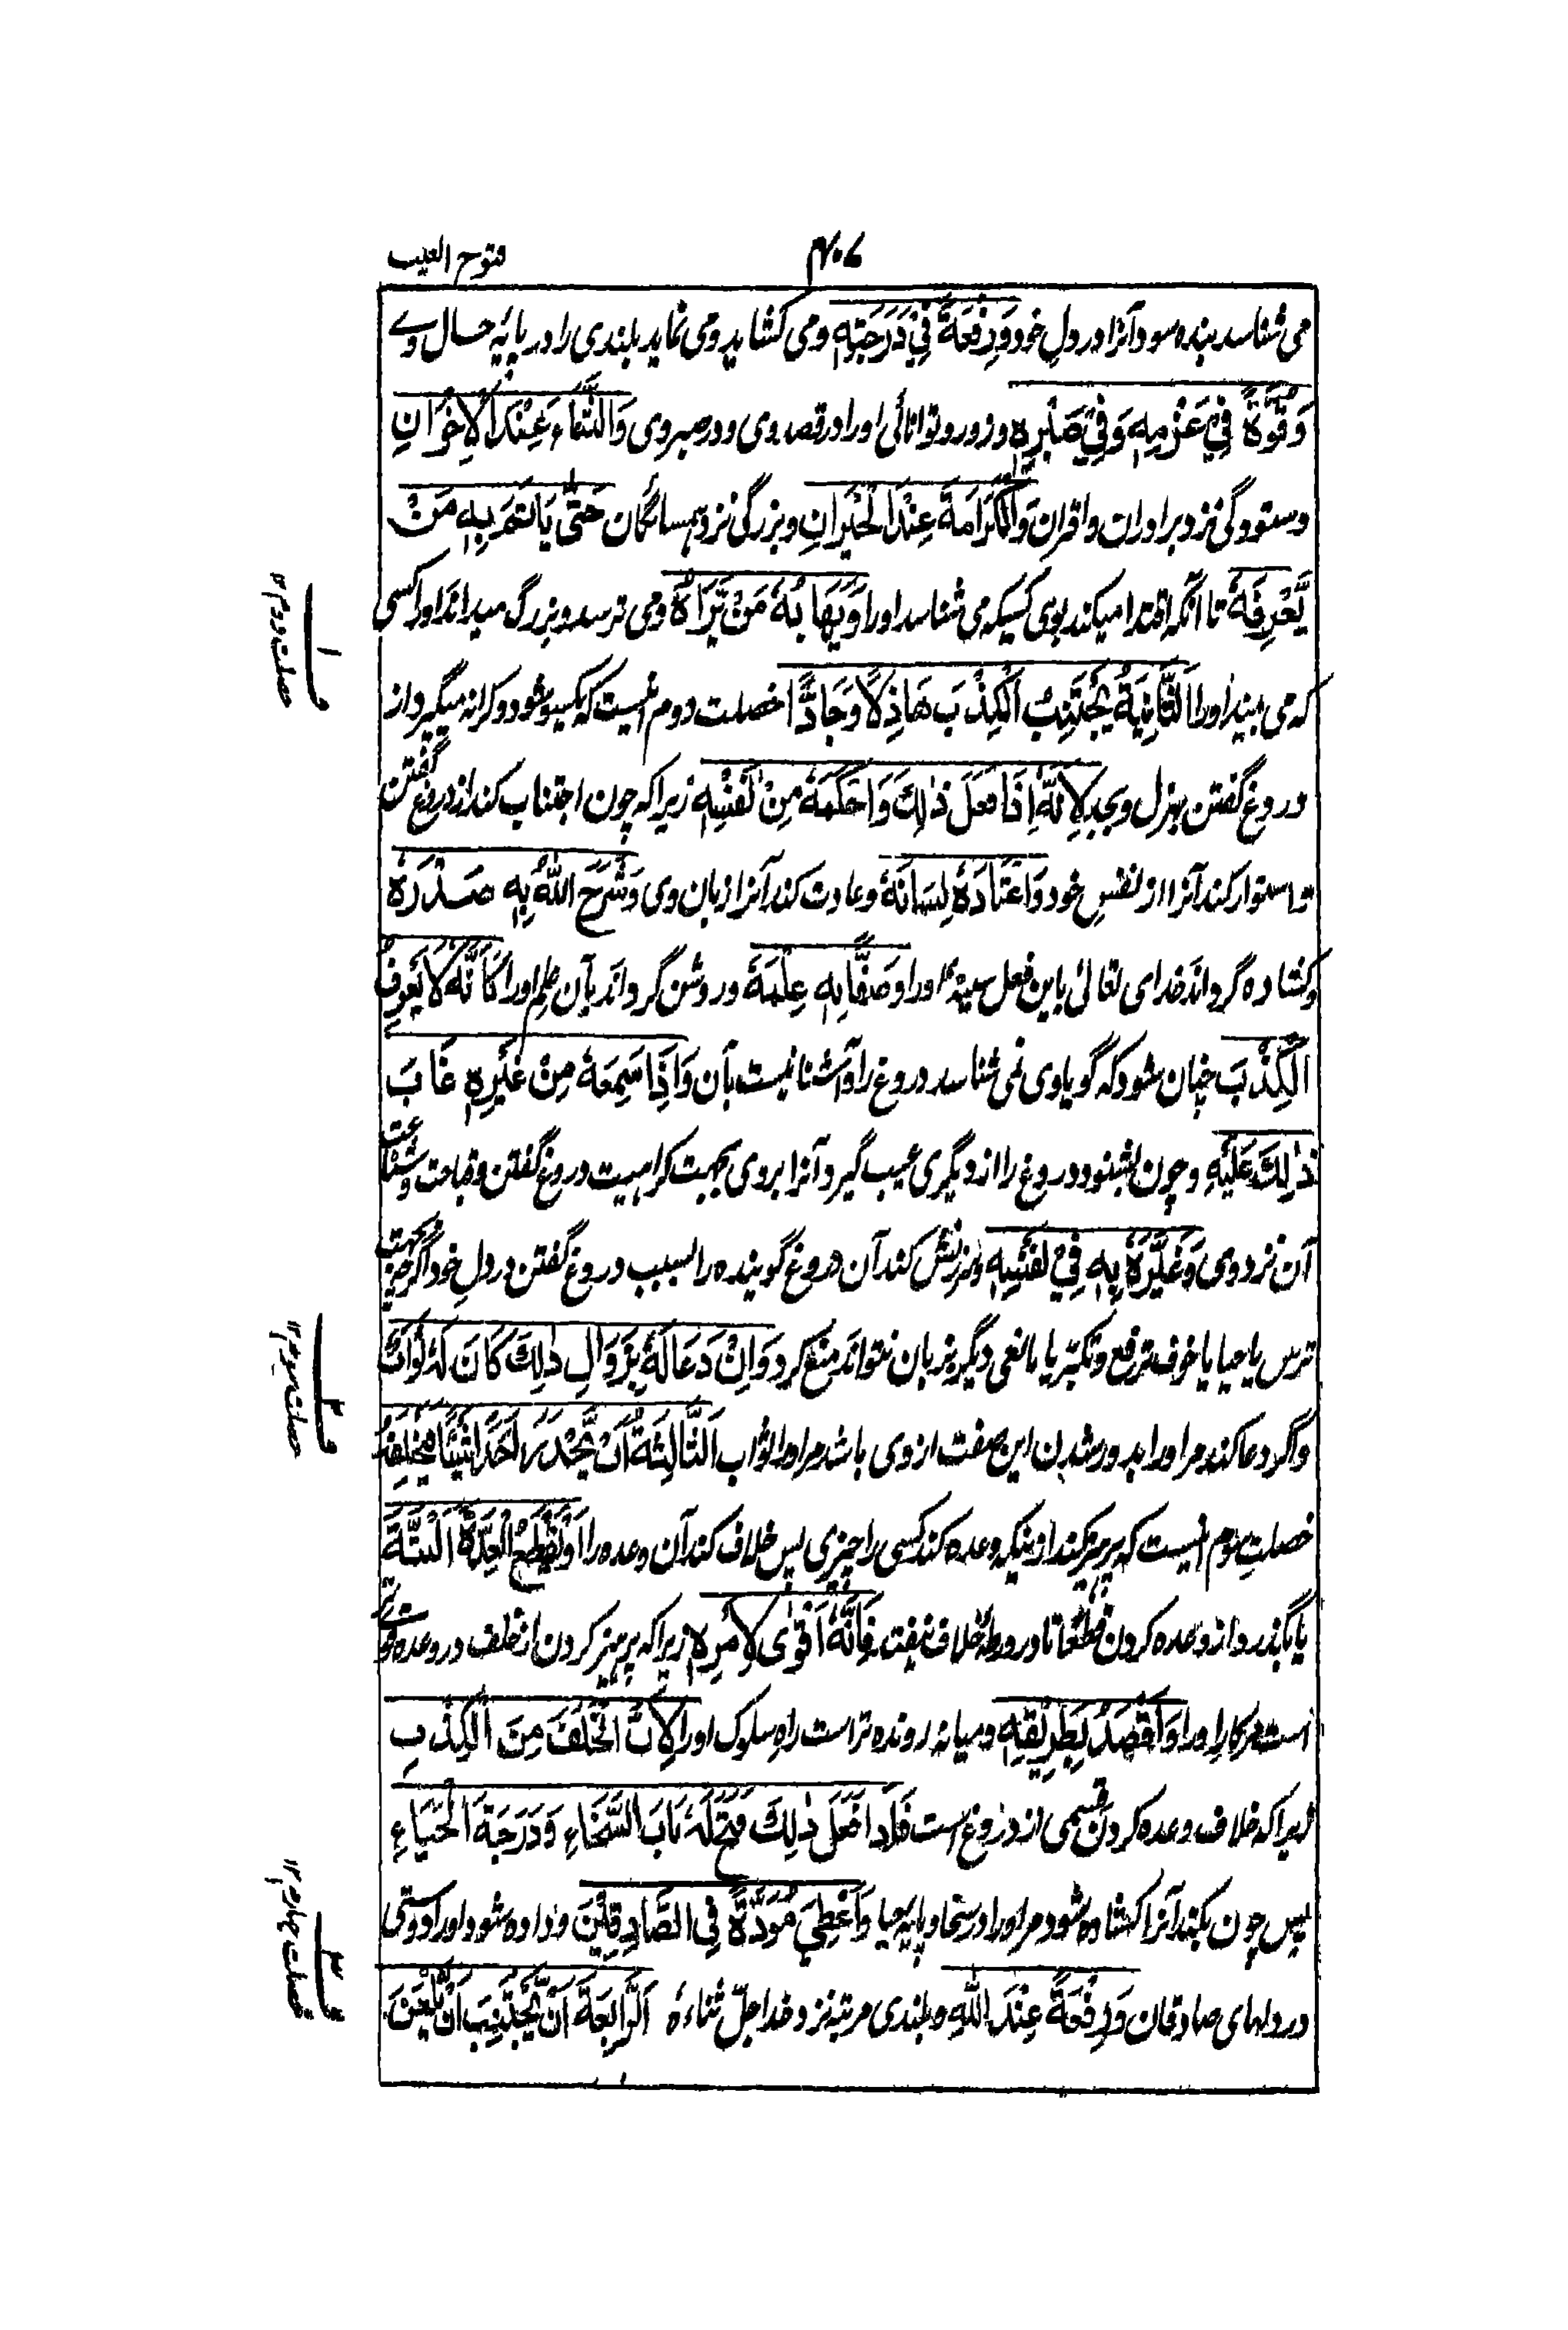 ۴۰۷
فتوح الغیب
می شناسد بنده سود آنرا در دل خود وَرِفْعَةً فِیْ دَرَجَتِهٖ ومی کشاید ومی نماید بلندی را در پایهٔ حال وے
وَقُوَّةً فِیْ عَزْمِهٖ وَفِیْ صَبْرِهٖ وزور وتوانائی اورا در قصد وی ودر صبر وی وَالثَّنَاءَ عِنْدَ الْاِخْوَانِ
وستودگی نزد برادران واقران وَالْكَرَامَةَ عِنْدَ الْجِيْرَانِ وبزرگی نزد همسائگان حَتّٰى يَاْتَمِرَ بِهٖ مَنْ
يَّعْرِفُهٗ تا آنکه اقتدا میکند بوی کسیکه می شناسد اورا وَيَهَابُهٗ مَنْ يَّرَاهُ ومی ترسد وبزرگ میداند اورا کسی
که می بیند اورا اَلثَّانِيَةُ يَجْتَنِبُ الْكِذْبَ هَاذِلًا وَجَادًّا خصلت دوم اینست که یکسو شود وکرانه میگیرد از
دروغ گفتن بهزل وبجد لِاَنَّهٗ اِذَا فَعَلَ ذٰلِكَ وَاَحْكَمَهٗ مِنْ نَفْسِهٖ زیراکه چون اجتناب کند از دروغ گفتن
واستوار کند آنرا از نفس خود وَاعْتَادَهٗ لِسَانُهٗ وعادت کند آنرا زبان وی وَشَرَحَ اللّٰهُ بِهٖ صَدْرَهٗ
وکشاده گرداند خدای تعالیٰ باین فعل سینهٔ اورا وَصَفَّا بِهٖ عِلْمَهٗ وروشن گرداند بآن علم اورا كَاَنَّهٗ لَا يَعْرِفُ
الْكِذْبَ چنان شود که گویا وی نمی شناسد دروغ را وآشنا نیست بآن وَاِذَا سَمِعَهٗ مِنْ غَيْرِهٖ عَابَ
ذٰلِكَ عَلَيْهِ وچون بشنود دروغ را از دیگری عیب گیرد آنرا بروی بجهت کراهیت دروغ گفتن وقباحت وشناعت
آن نزد وی وَعَيَّرَهٗ بِهٖ فِیْ نَفْسِهٖ وسرزنش کند آن دروغ گوینده را بسبب دروغ گفتن در دل خود اگرچه بجهت
ترس یا حیا یا خوف ترفع وتکبّر یا مانعی دیگر بزبان نتواند منع کرد وَاِنْ دَعَا لَهٗ بِزَوَالِ ذٰلِكَ كَانَ لَهٗ ثَوَابٌ
واگر دعا کند مر اورا بدور شدن این صفت از وی باشد مر اورا ثواب اَلثَّالِثَةُ اَنْ يَّحْذَرَ اَحَدًا شَيْئًا فَيُخْلِفَهٗ
خصلت سوم اینست که پرهیز کند ازینکه وعده کند کسی را چیزی پس خلاف کند آن وعده را اَوْ يَقْطَعُ الْعِدَةَ اَلْبَتَّةَ
یا بگذرد از وعده کردن قطعًا تا در ورطهٔ خلاف نیفتد فَاِنَّهٗ اَقْوٰى لِاَمْرِهٖ زیراکه پرهیز کردن از خلف در وعده قوی تر
است مر کار اورا وَاَقْصَدُ بِطَرِيْقِهٖ ومیانه رونده تر است راه سلوک اورا لِاَنَّ الْخُلْفَ مِنَ الْكِذْبِ
زیراکه خلاف وعده کردن قسمی از دروغ است فَاِذَا فَعَلَ ذٰلِكَ فُتِحَ لَهٗ بَابُ السَّخَاءِ وَدَرَجَةُ الْحَيَاءِ
پس چون بکند آنرا کشاده شود مر اورا در سخا وپایهٔ حیا وَاُعْطِيَ مَوَدَّةً فِی الصَّادِقِيْنَ وداده شود اورا دوستی
در دلهای صادقان وَرِفْعَةً عِنْدَ اللّٰهِ وبلندی مرتبه نزد خدا جلّ ثناءهٗ اَلرَّابِعَةُ اَنْ يَّجْتَنِبَ اَنْ يَّلْعَنَ
خصلت دوم ۱۲
خصلت سوم ۱۲
خصلت چهارم ۱۲